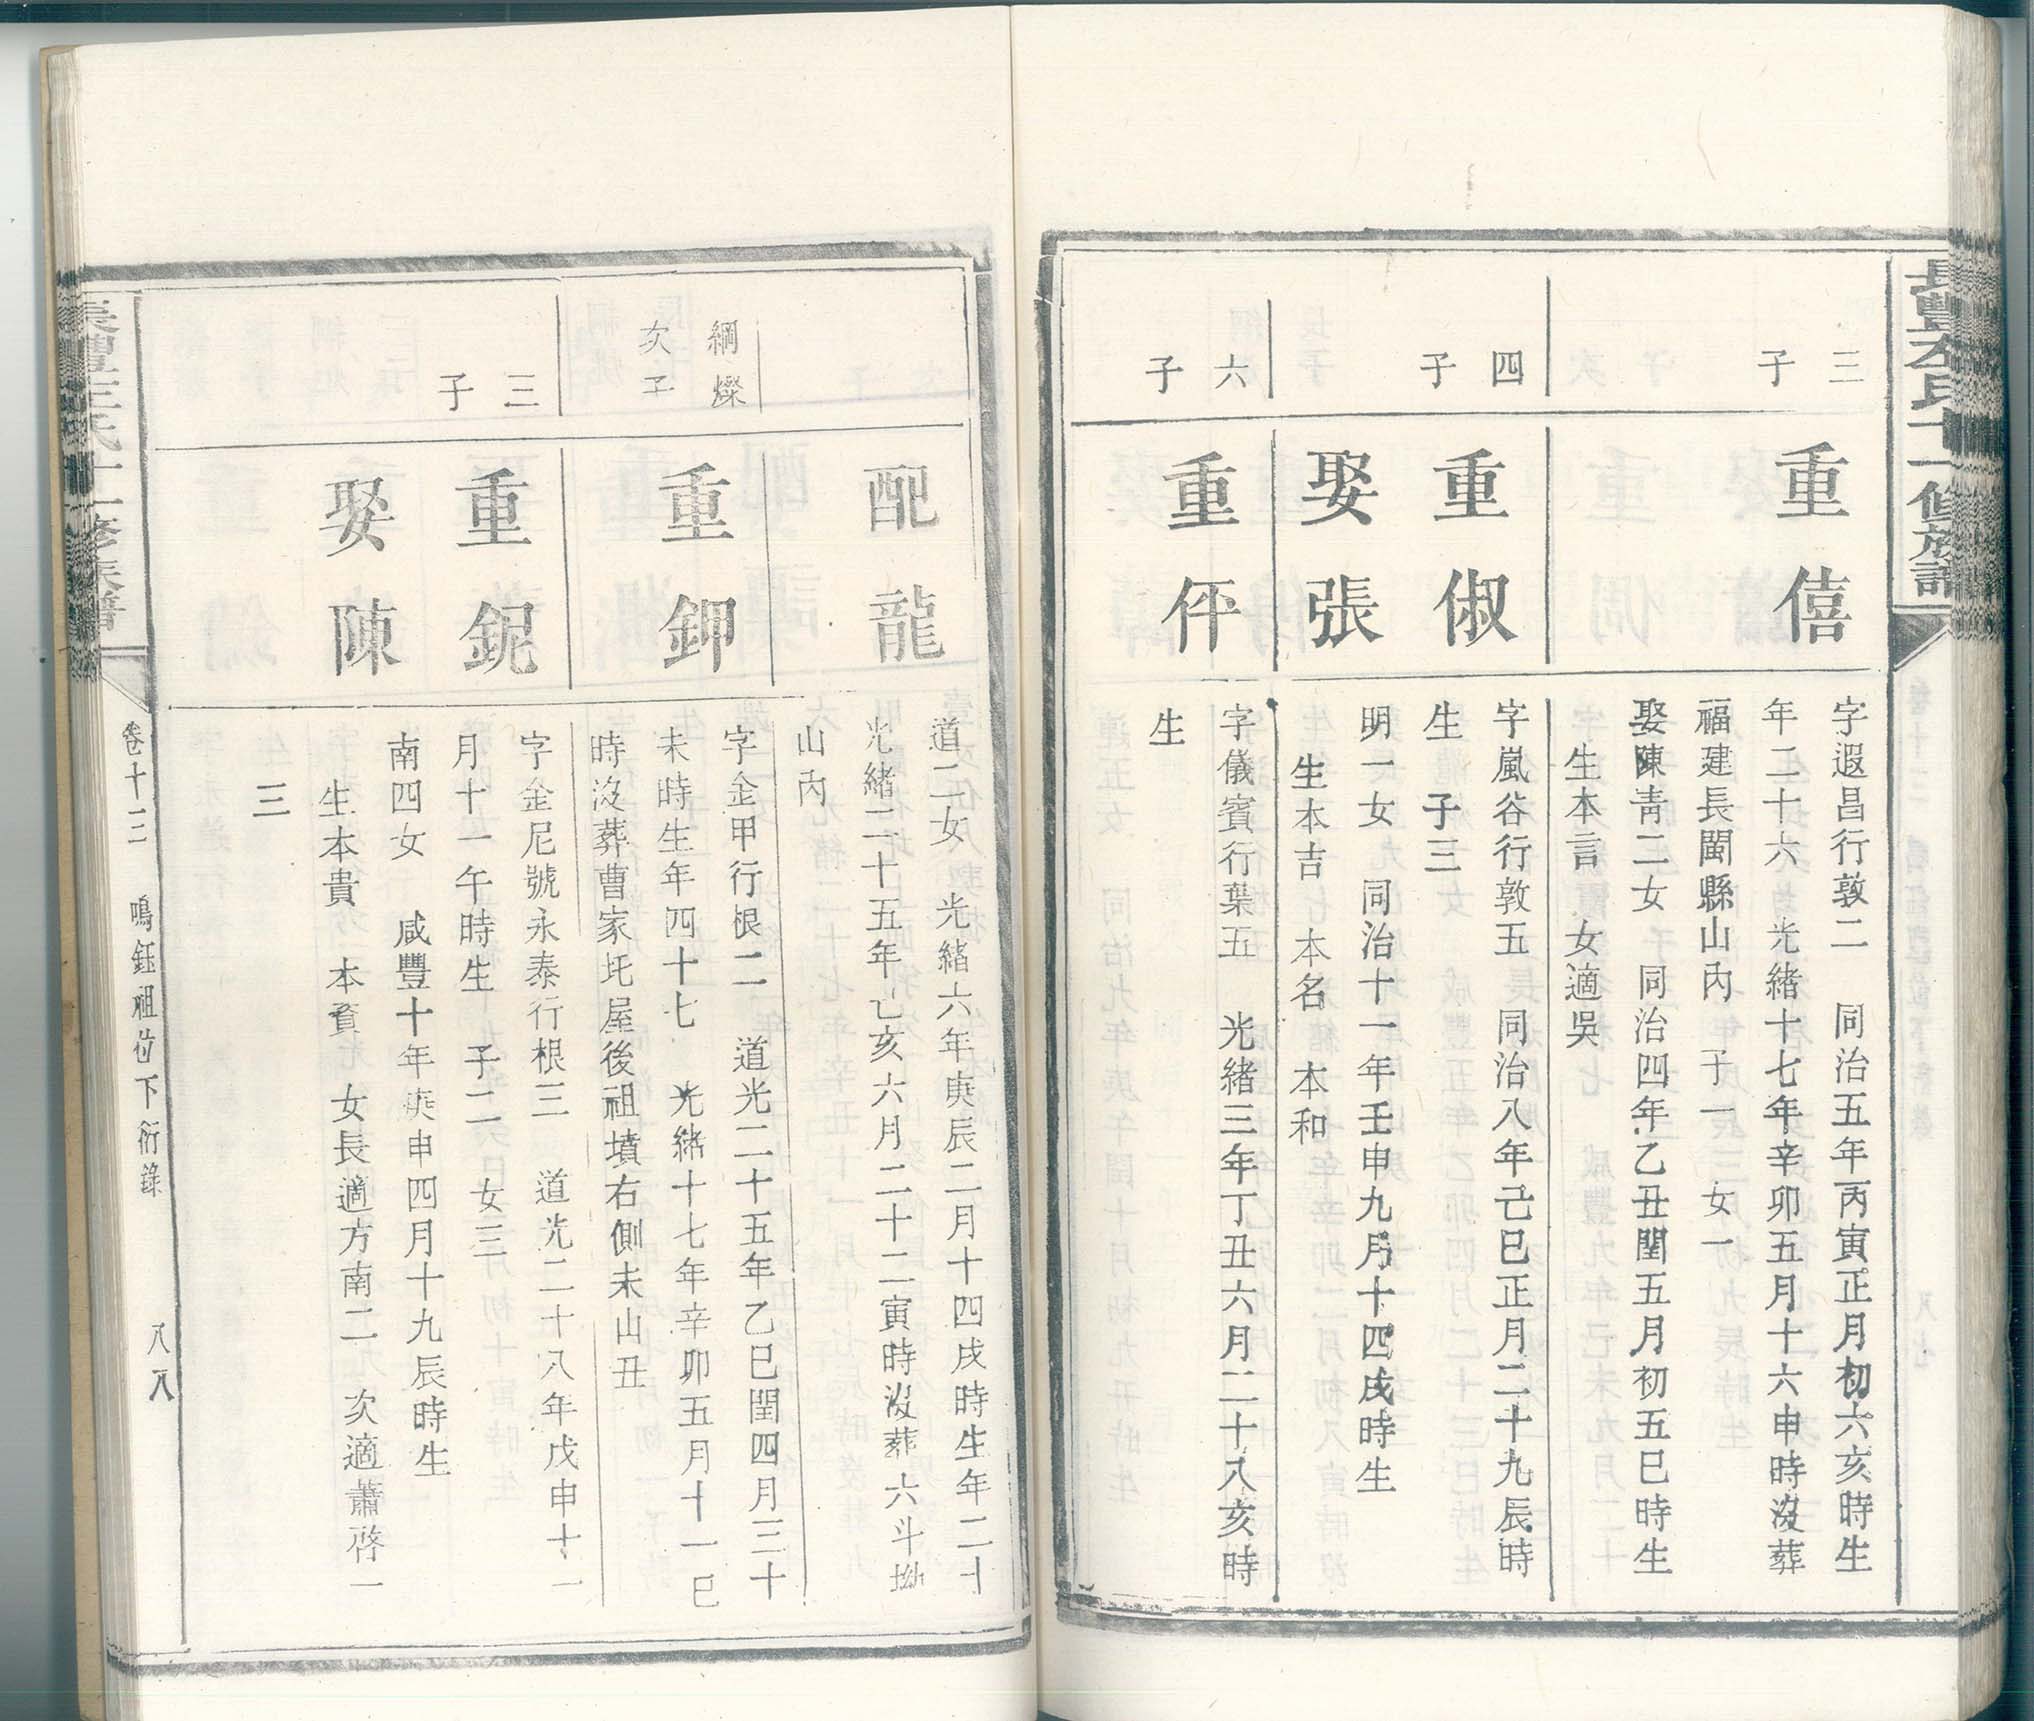 三子
重僖
字遐昌行敦二 同治五年丙寅正月初六亥時生
年二十六 光緒十七年辛卯五月十六申時沒葬
福建長閩縣山內 子一 女一
娶陳青二女 同治四年乙丑閏五月初五巳時生
生本言 女適吳
四子
重俶
字嵐谷行敦五 同治八年己巳正月二十九辰時
生 子三
娶張
明一女 同治十一年壬申九月十四戌時生
生本吉 本名 本和
六子
重伻
字儀賓行葉五 光緒三年丁丑六月二十八亥時
生
配龍
道二女 光緒六年庚辰二月十四戌時生年二十
光緒二十五年己亥六月二十二寅時沒葬六斗坳
山內
綱燦
次子
重鉀
字金甲行根二 道光二十五年乙巳閏四月三十
未時生年四十七 光緒十七年辛卯五月十一巳
時沒葬曹家坉屋後祖墳右側未山丑
三子
重鈮
字金尼號永泰行根三 道光二十八年戊申十一
月十一午時生 子二 女三
娶陳
南四女 咸豐十年庚申四月十九辰時生
生本貴 本賓 女長適方南二 次適蕭啓一
三
卷十三 鳴鈺祖位下衍錄 八八